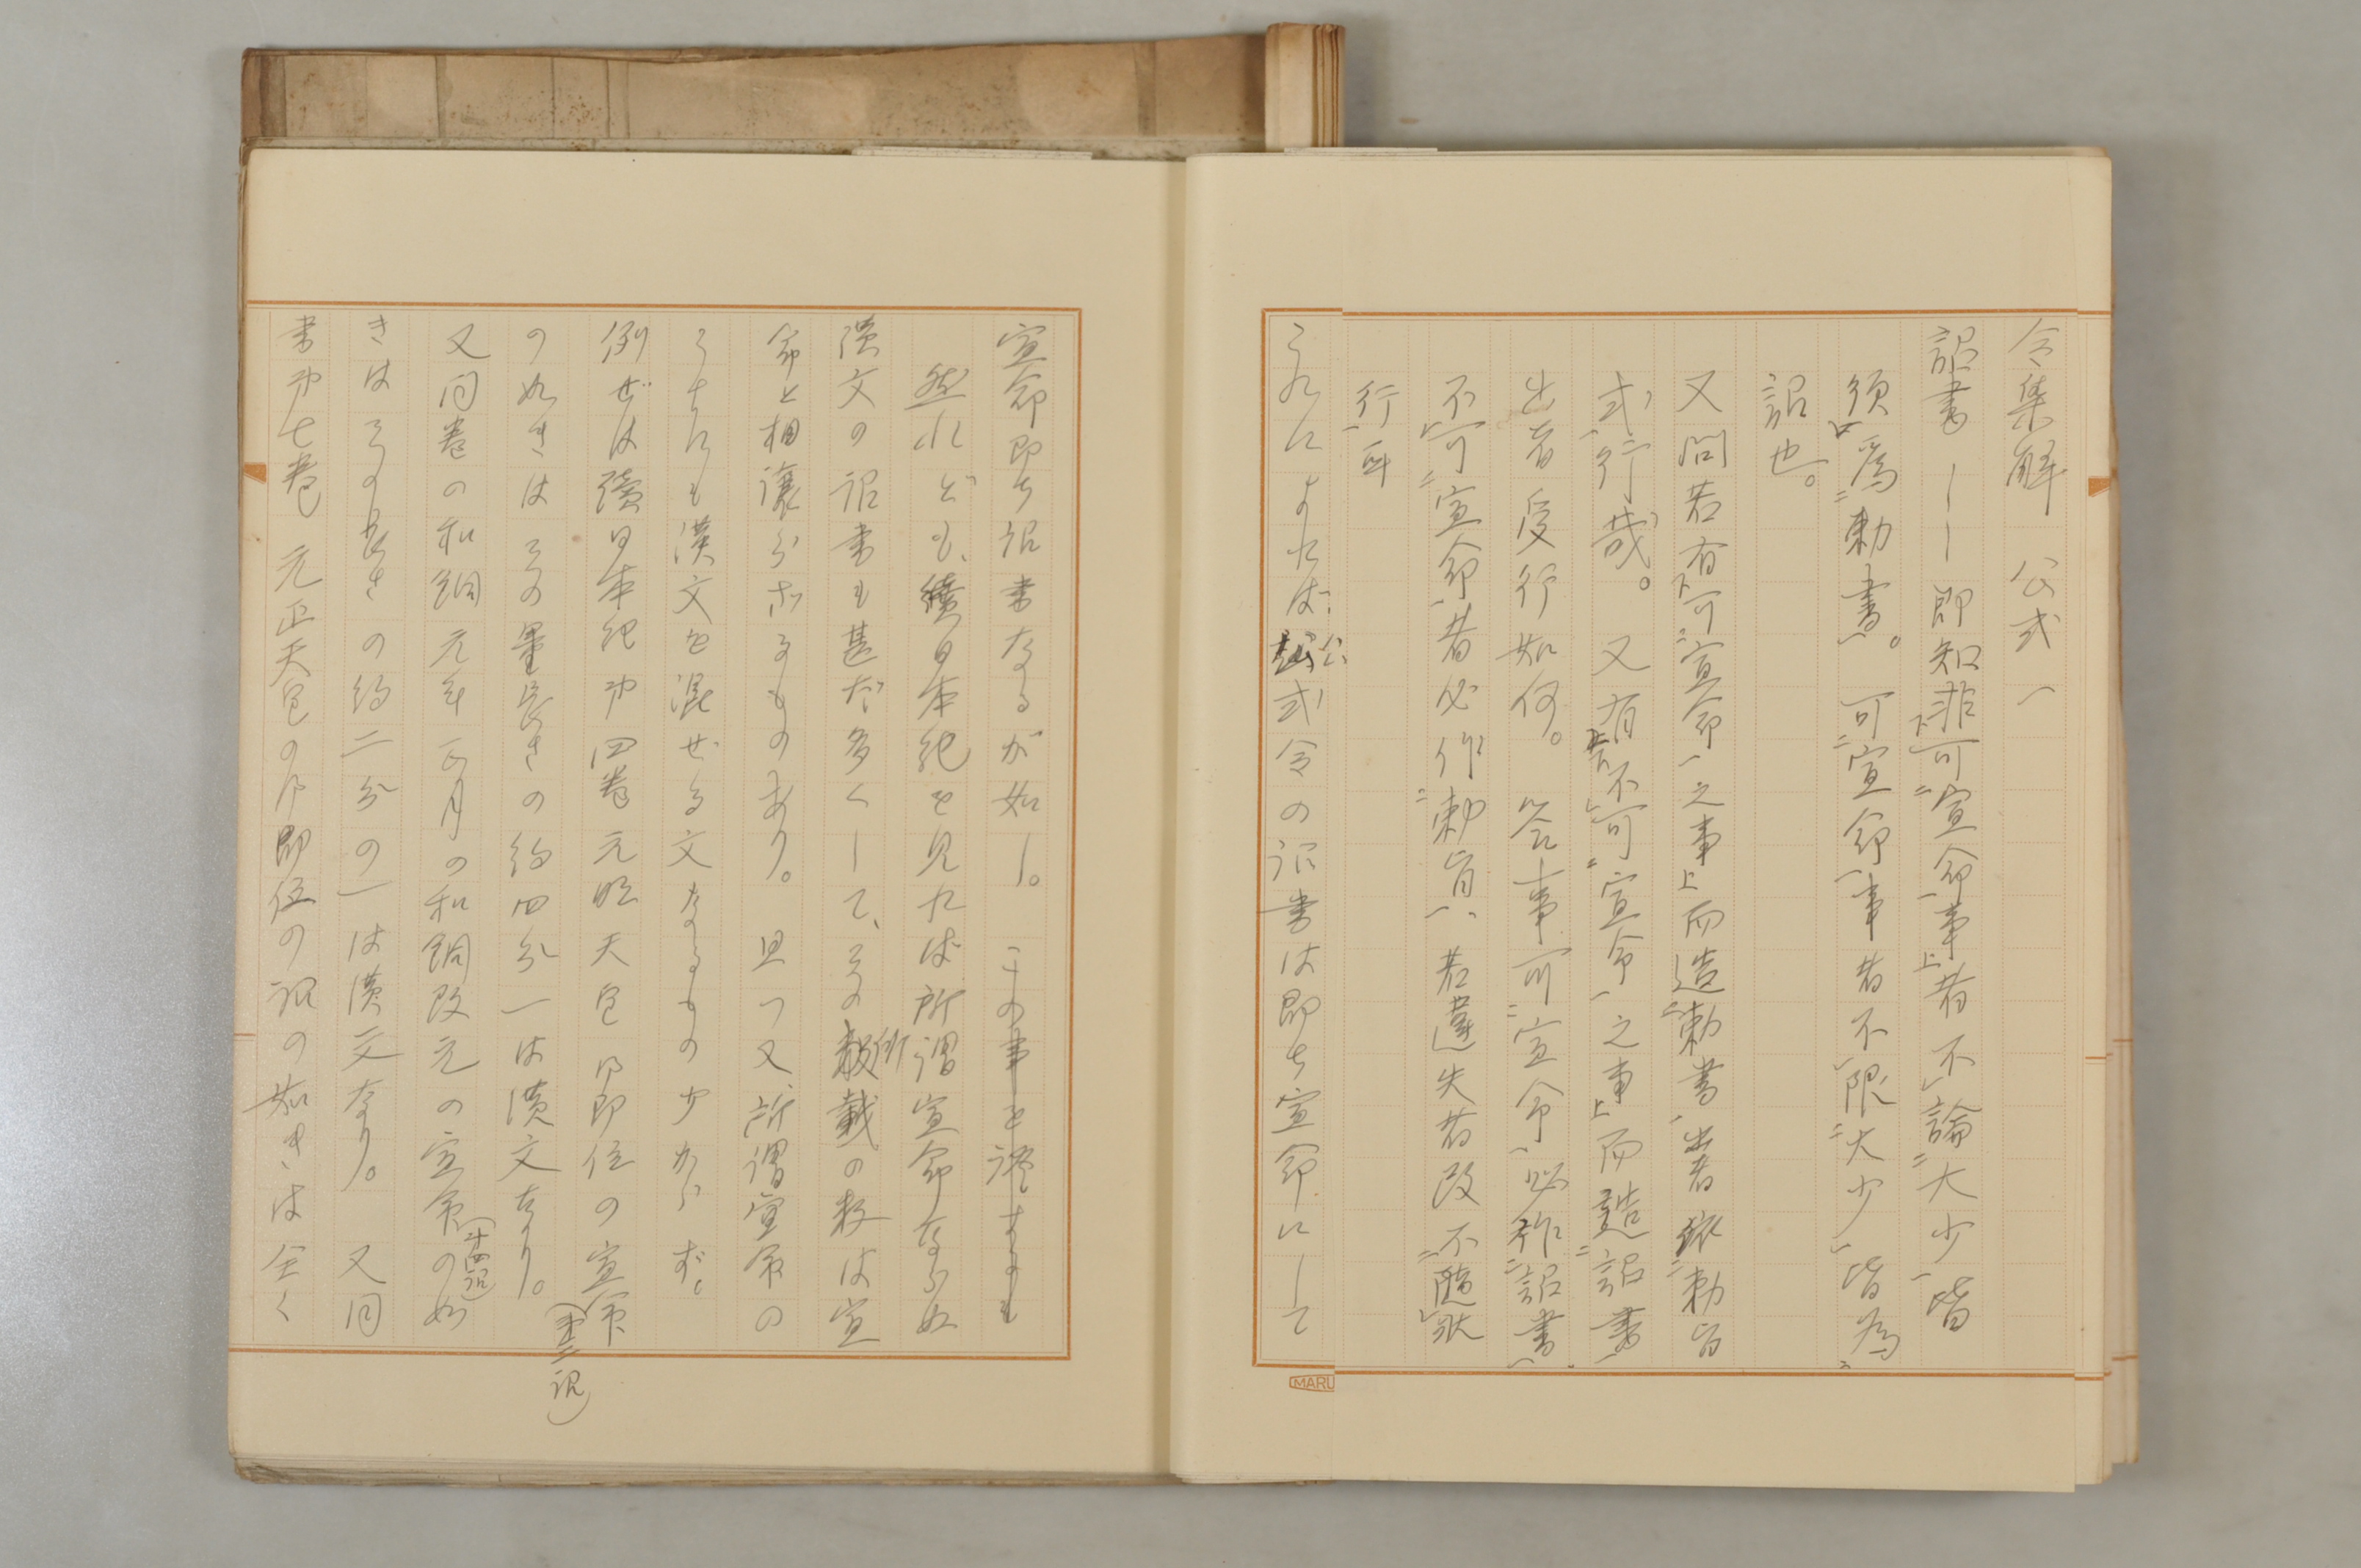 令集解 公式一
詔書――即知非可宣命事者不論大少皆
須為勅書。可宣命事者不限大少皆為
詔也。
又問若有可宣命之事上而造勅書出者依勅旨
式行哉。又有若不可宣命之事上而造詔書
出者受行如何。答事可宣命必作詔書
不可宣命者必作勅旨、若違失者改不随状
行耳
これによれば公式令の詔書は即ち宣命にして
宣命即ち詔書なるが如し。この事を證するも
然れども、續日本紀を見れば所謂宣命ならぬ
漢文の詔書も甚だ多くして、その所載の数は宣
命と相譲らざるものあり。且つ又、所謂宣命の
うちにも漢文を混ぜる文なるもの少からず。
例せば續日本紀第四巻元明天皇御即位の宣命(第三詔)
の如きはその量長さの約四分一は漢文なり。
又同巻の和銅元年正月の和銅改元の宣命(第四詔)の如
きはその長さの約二分の一は漢文なり。又同
書第七巻 元正天皇の御即位の詔の如きは全く
MARU